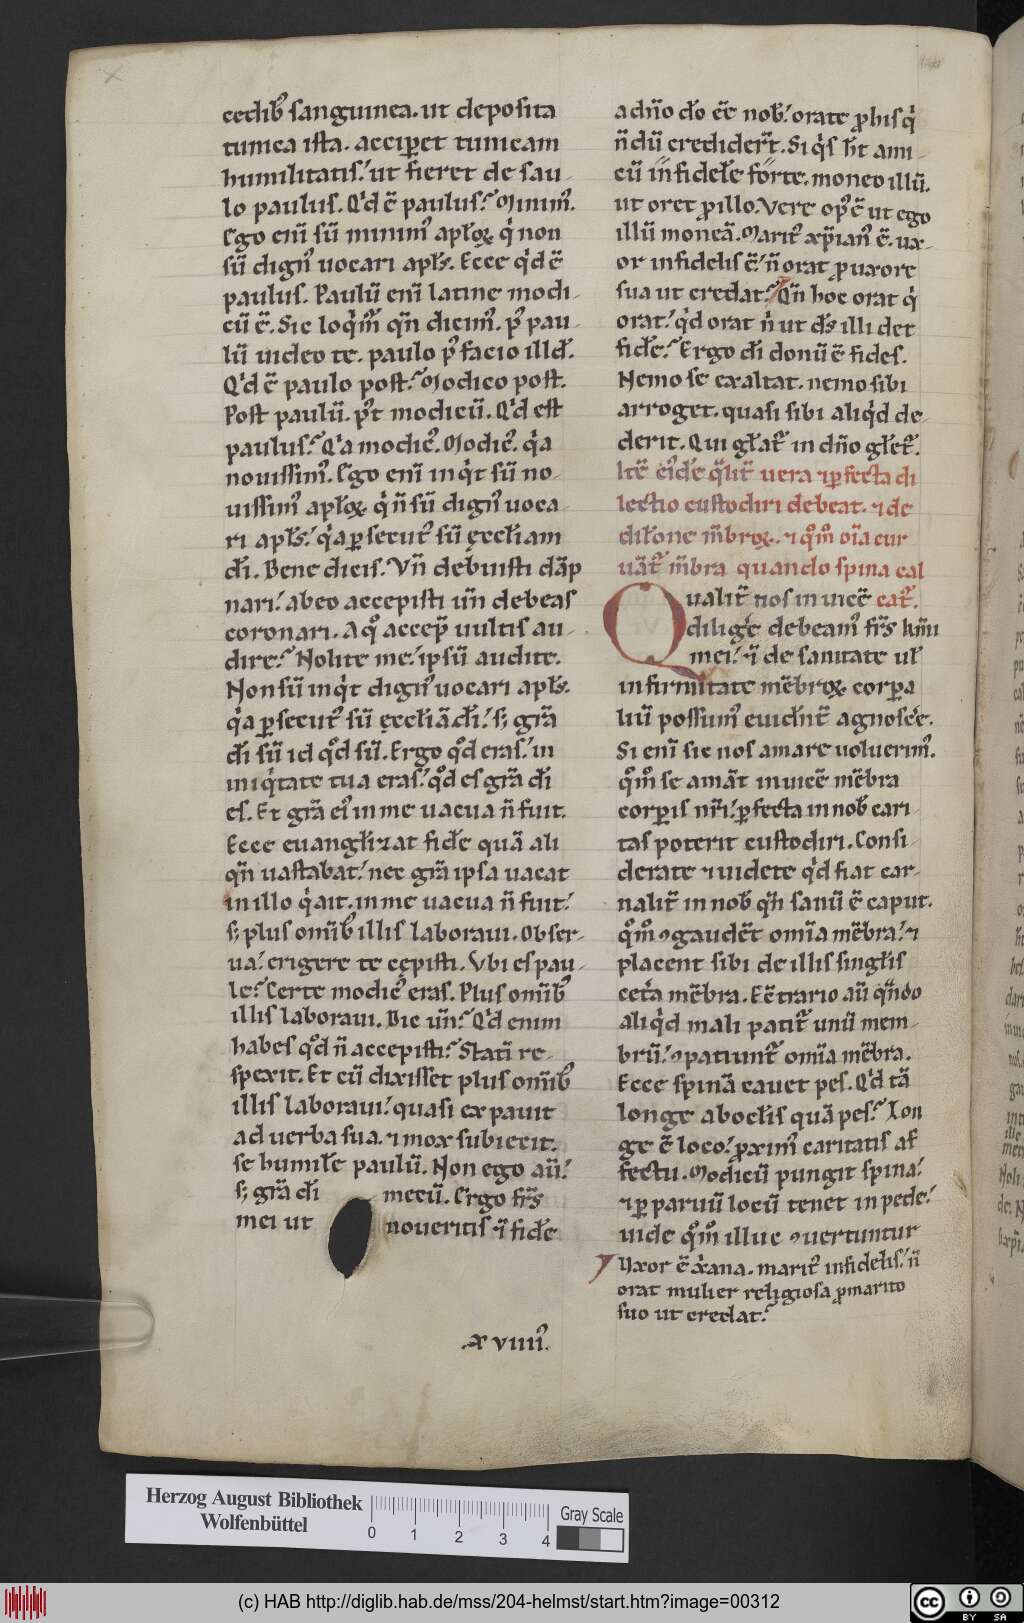 cedib᷒ sanguinea. ut deposita
tunica ista. accip̄et tunicam
humilitatis.' ut fieret de sau-
lo paulus. Q'd ē paulus? Minim᷒.
Ego eni̅ su̅ minim᷒ aplōꝝ q' non
su̅ dign᷒ uocari apl̄s. Ecce q'd ē
paulus. Paulu̅ eni̅ latine modi-
cu̅ ē. Sic loq'm᷒ qn̄ dicim᷒. p᷒ pau-
lu̅ uideo te. paulo p᷒ facio illd̄.
Q'd ē paulo post? Modico post.
Post paulu̅. p᷒t modicu̅. Q'd est
paulus? Q'a modic᷒. Modic᷒. q'a
nouissim᷒. Ego eni̅ inq't su̅ no-
uissim᷒ aplōꝝ q' n̄ su̅ dign᷒ uoca-
ri apl̄s.' q'a ꝑsecut᷒ su̅ ęccl̄iam
dī. Bene dicis. Vn̄ debuisti dāp
nari.' abeo accepisti un̄ debeas
coronari. A qͦ accep̄ uultis au-
dire? Nolite me.' ipsu̅ audite.
Non su̅ inq't dign᷒ uocari apl̄s.
q'a ꝑsecut᷒ su̅ ęccl̄iā dī.' s; gr̄a
dī su̅ id qͦd su̅. Ergo qͦd eras.' in
iniq'tate tua eras.' qͦd es gr̄a dī
es. Et gr̄a ei᷒ in me uacua n̄ fuit.
Ecce euangl̄izat fidē quā ali
qn̄ uastabat.' nec gr̄a ipsa uacat
in illo q' ait. in me uacua n̄ fuit.'
s; plus omīb᷒ illis laboraui. Obser-
ua.' erigere te cępisti. Vbi es pau-
le? Certe modic᷒ eras. Plus omīb᷒
illis laboraui. Dic un̄? Q'd enim
habes qͦd n̄ accepisti? Stati̅ re-
spexit. Et cu̅ dixisset plus omīb᷒
illis laboraui.' quasi expauit
ad uerba sua. ⁊ mox subiecit.
se humilē paulu̅. Non ego au̅.'
s; gr̄a dī mecu̅. Ergo fr̄s
mei ut noueritis ⁊ fidē
.xviiii᷒.
a dn̄o dō ēē nob᷒.' orate ꝓ his q'
n̄ du̅ credider̄t. Si q's h̄t ami-
cu̅ infidelē forte. moneo illu̅.
ut oret ꝓ illo. Vere op᷒ ē ut ego
illu̅ moneā. Marit᷒ xp̄ian᷒ ē. ux-
or infidelis ē.' n̄ orat ꝓ uxore
sua ut credat? Qn̄ hoc orat q'
orat.' q'd orat n' ut d̄s illi det
fidē? Ergo dī donu̅ ē fides.
Nemo se exaltat. nemo sibi
arroget. quasi sibi aliq'd de-
derit. Qui gl̄at᷒ in dn̄o gl̄et᷒.
Ite̅ ei᷒dē q̄lit̄ uera ⁊ ꝑfecta di
lectio custodiri debeat. ⁊ de
dil̄one m̄broꝝ. ⁊ qͦm̊ oīa cur
uāt᷒ m̄bra quando spina cal
Qualit̄ nos in uicē cat᷒.
diligē debeam᷒ fr̄s kr̄mi
mei.' ⁊ de sanitate ul̄
infirmitate mēbroꝝ corpa
liu̅ possum᷒ euidn̄t̄ agnoscē.
Si eni̅ sic nos amare uoluerim᷒.
qͦm̊ se amāt inuicē mēbra
corꝑis nr̄i.' ꝑfecta in nob᷒ cari-
tas poterit custodiri. Consi-
derate ⁊ uidete q'd fiat car-
nalit̄ in nob᷒ qn̄ sanu̅ ē caput.
qͦm̊ ꝯgaudēt omīa mēbra.' ⁊
placent sibi de illis singl̄is
cet̄a mēbra. E ꝯtrario au̅ qn̄do
aliq'd mali patit᷒ unu̅ mem-
bru̅.' ꝯpatiunt᷒ omīa mēbra.
Ecce spinā calcet pes. Q'd tā
longe ab oclis quā pes? Lon
ge ē loco.' ꝓxim᷒ caritatis af-
fectu. Modicu̅ pungit spina.'
⁊ ꝑ paruu̅ locu̅ tenet in pede.'
uide qͦm̊ illuc ꝯuertuntur
Uxor ē xᵽana. marit᷒ infidelis.' n̄
orat mulier religiosa ꝓ marito
suo ut credat?
Herzog August Bibliothek
Wolfenbüttel
0 1 2 3 4
Gray Scale
(c) HAB http://diglib.hab.de/mss/204-helmst/start.htm?image=00312
cc BY SA